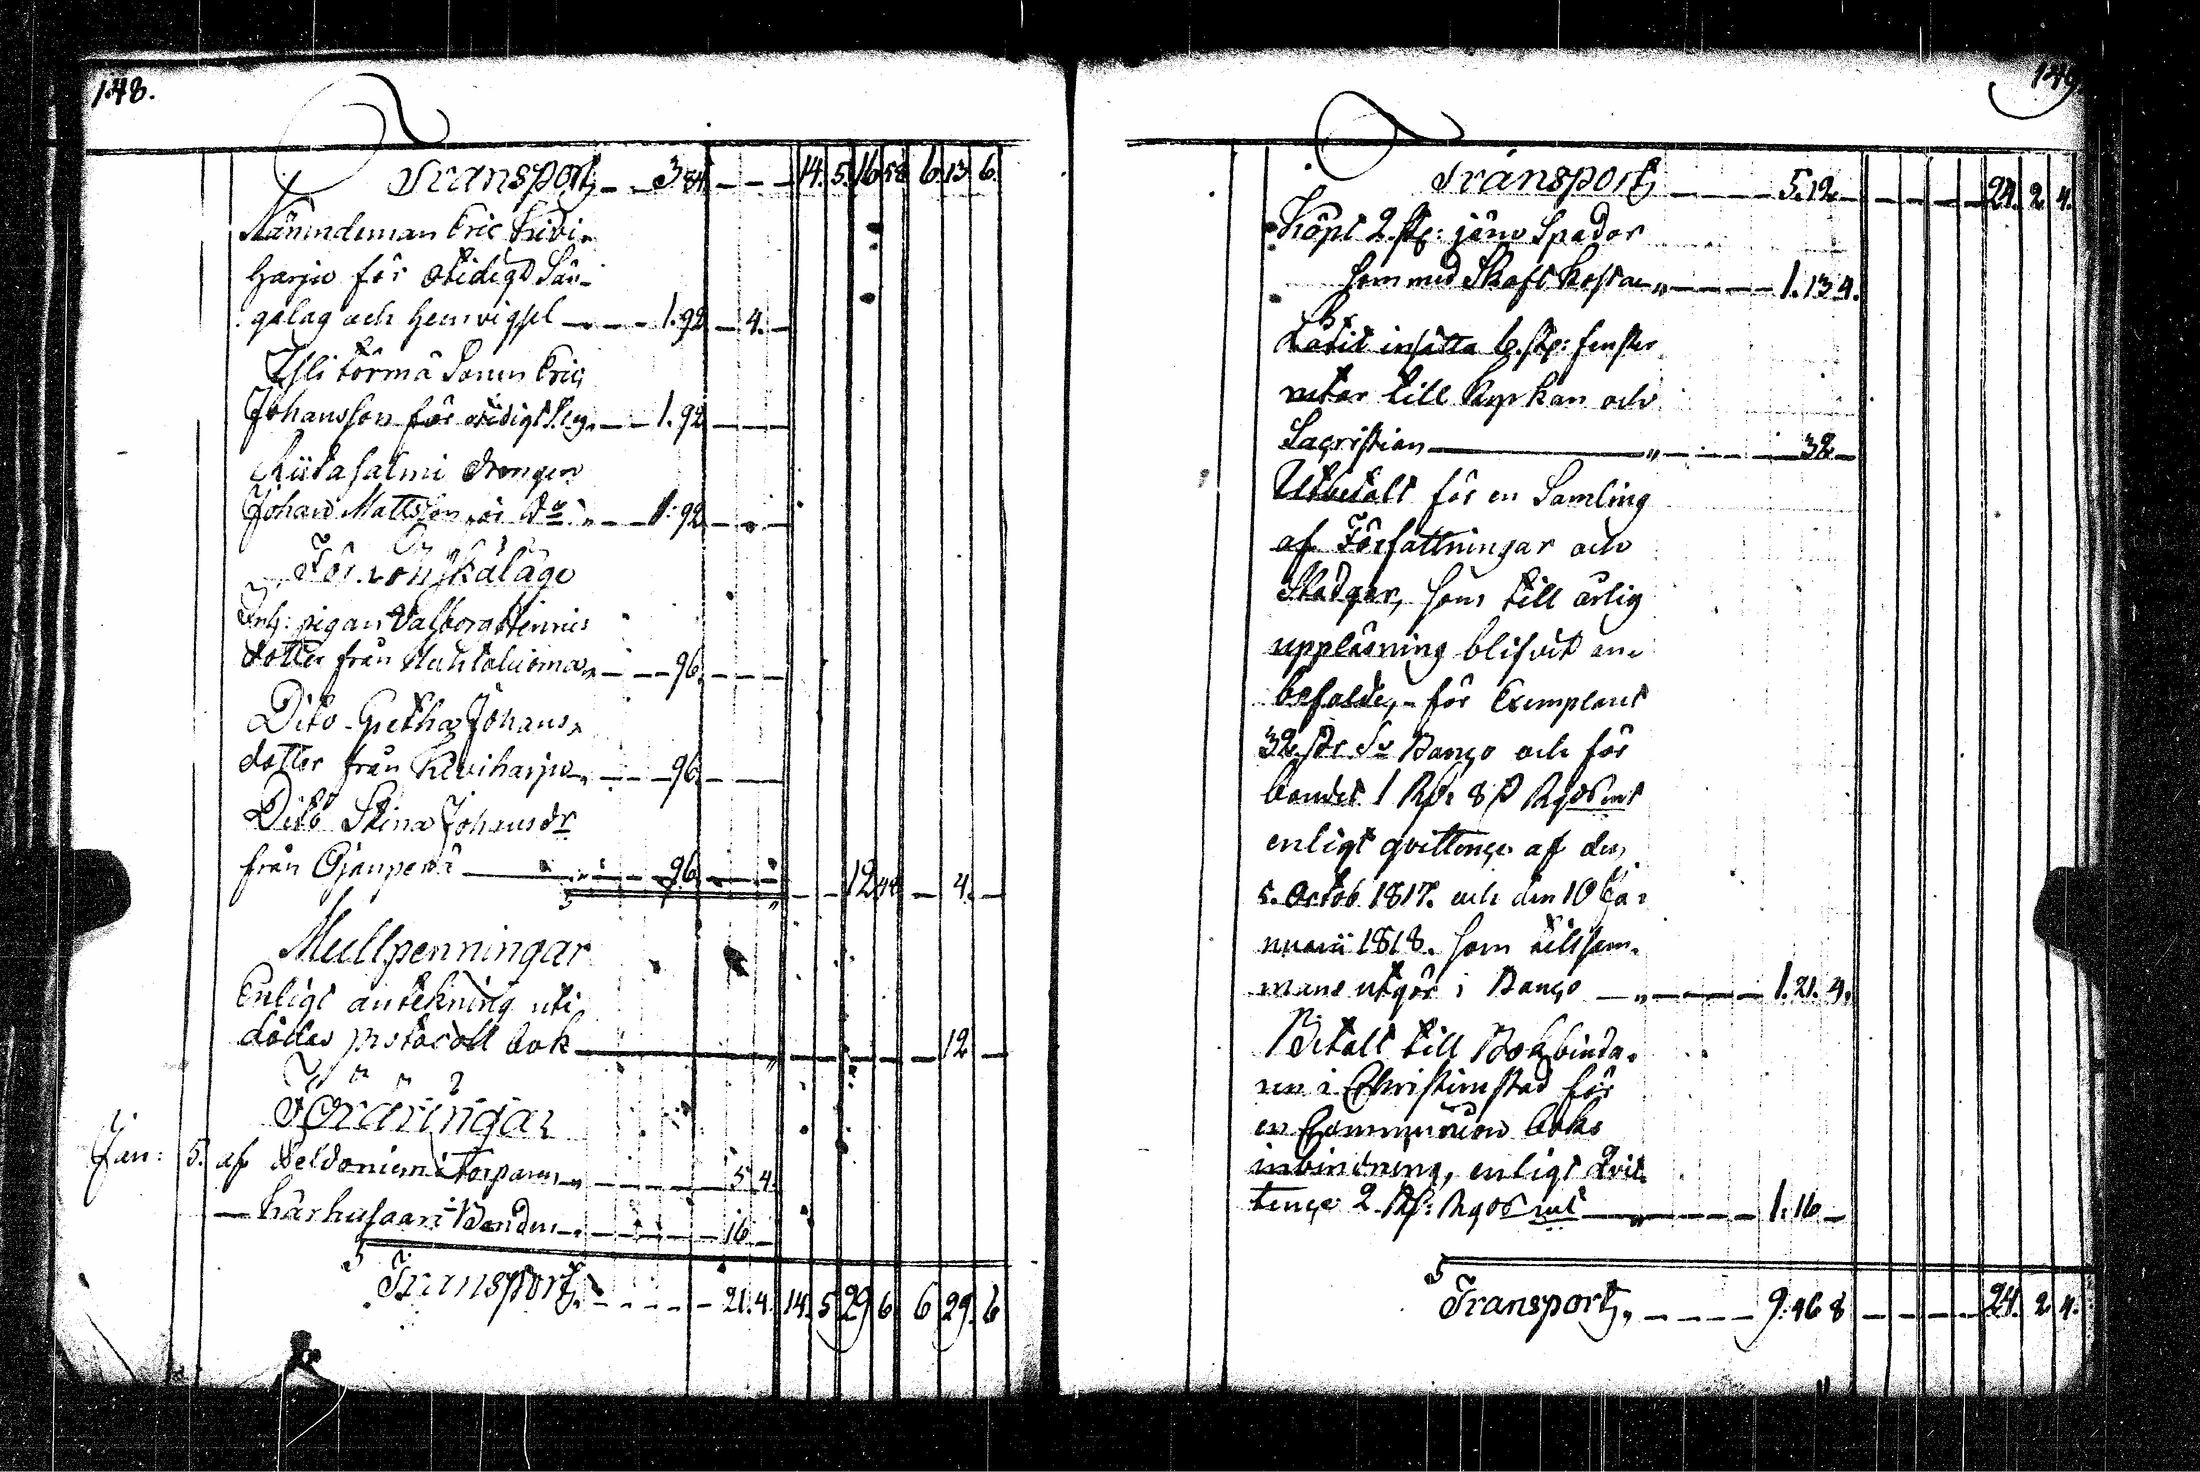 148.
Transport, 3.84. 14. 5. 16 58 6. 13. 6.
Nämndeman Eric Kivi-
harju för otidigt Sän-
galag och hemvigsel 1.92 4.
Ylitörmä Sonen Eric
Johansson för otidigt 1.92
Riitasalmi drengen
Johan Mattsson 1.92
För Lönskaläge
Inh: pigan Valborg Hennics
dotter från 96.
Dito Gretha Johans
dotter från Kiviharju 96
Dito Stina Johansdr
från Ojanperä 96 12 48 4.
Mullpenningar
Enligt antekning uti
dödes protocoll bok 12
Föräringar
Jan: 5. af Keldoniemi Torparen 5 4.
Kärhusaari Bonden 16
Transport, 21.4. 14. 5 29 6 6 29. 6
149
Transport, 5.12 24. 2 4.
Köpt 2. st: järn Spador
som med Skaft kosta 1.13 4.
Låtit insätta 6. st: fenster
rutor till Kyrkan och
Sacristian 32
Utbetalt för en Samling
af Författningar och
Stadgar, som till årlig
uppläsning blifvit an-
befalde, för Exemplaret
32 s: Banco och för
bandet 1 Rd: 8 s Rgds mt
enligt qvittence af den
5. Octob. 1817. och den 10 Ja-
nuarii 1818. som tillsam-
mans utgör i Banco 1. 21. 4.
Betalt till Bokbinda-
ren i Christinestad för
en Communion boks
inbindning, enligt Qvit-
tence 2. Rd: Rgds mt 1. 16
Transport, 9. 46 8 24. 2 4.